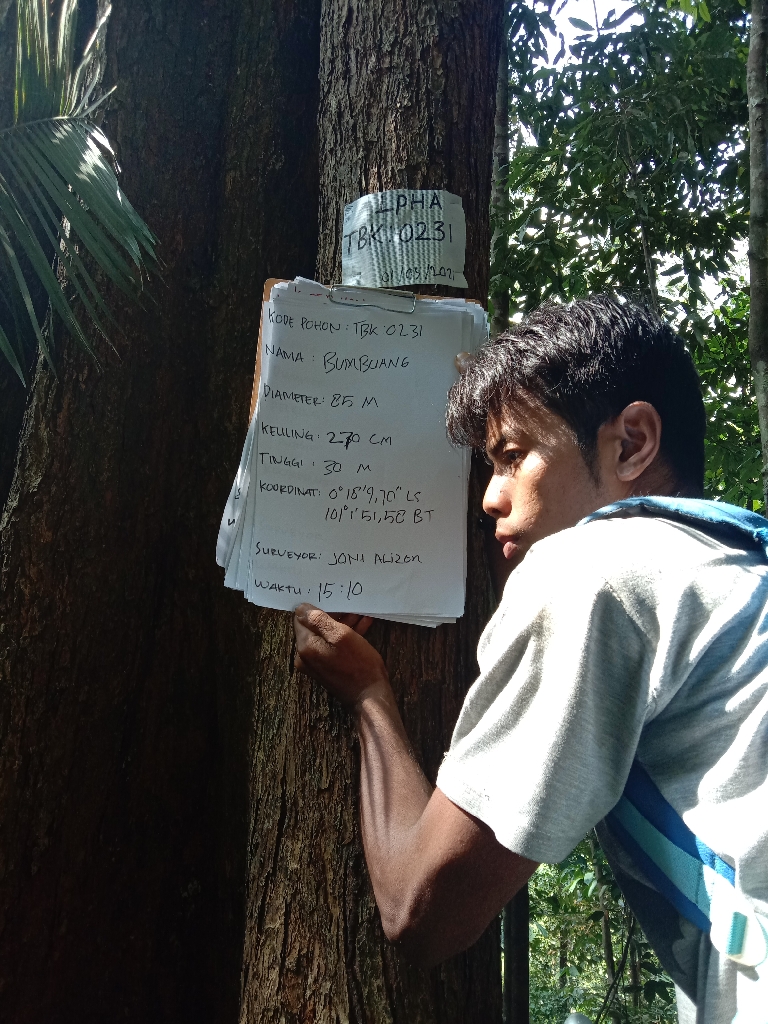 LPHA
TBK:0231
01/03/2021
KODE POHON : TBK:0231
NAMA : BUMBUANG
DIAMETER: 85 M
KELILING: 270 CM
TINGGI : 30 M
KOORDINAT: 0°18'9,70" LS
101°1'51,58 BT
SURVEYOR: JONI ALIZON
WAKTU : 15:10